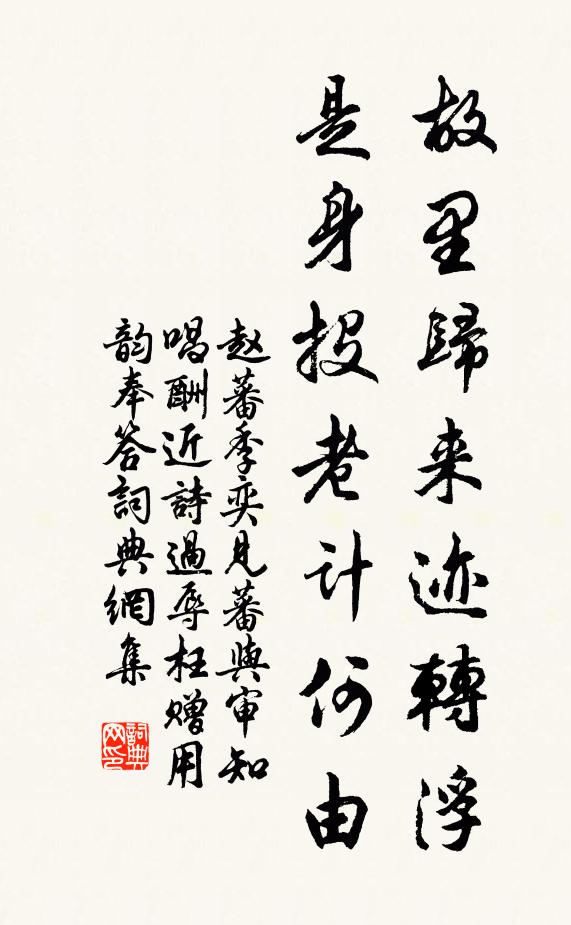 故里歸来迹轉浮
是身投老计何由
赵蕃季奕见蕃與审知
唱酬近詩過辱枉赠用
韵奉答詞典網集
詞典网印